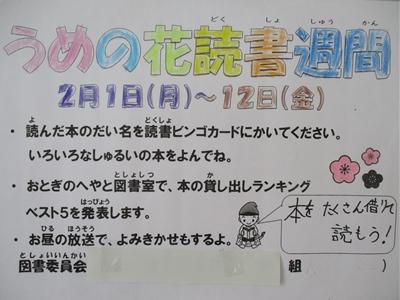 うめの花読書週間
2月1日(月)~12日(金)
・読んだ本のだい名を読書ビンゴカードにかいてください。
いろいろなしゅるいの本をよんでね。
・おとぎのへやと図書室で、本の貸し出しランキング
ベスト5を発表します。
・お昼の放送で、よみきかせもするよ。
本をたくさん借りて
読もう!
図書委員会 組